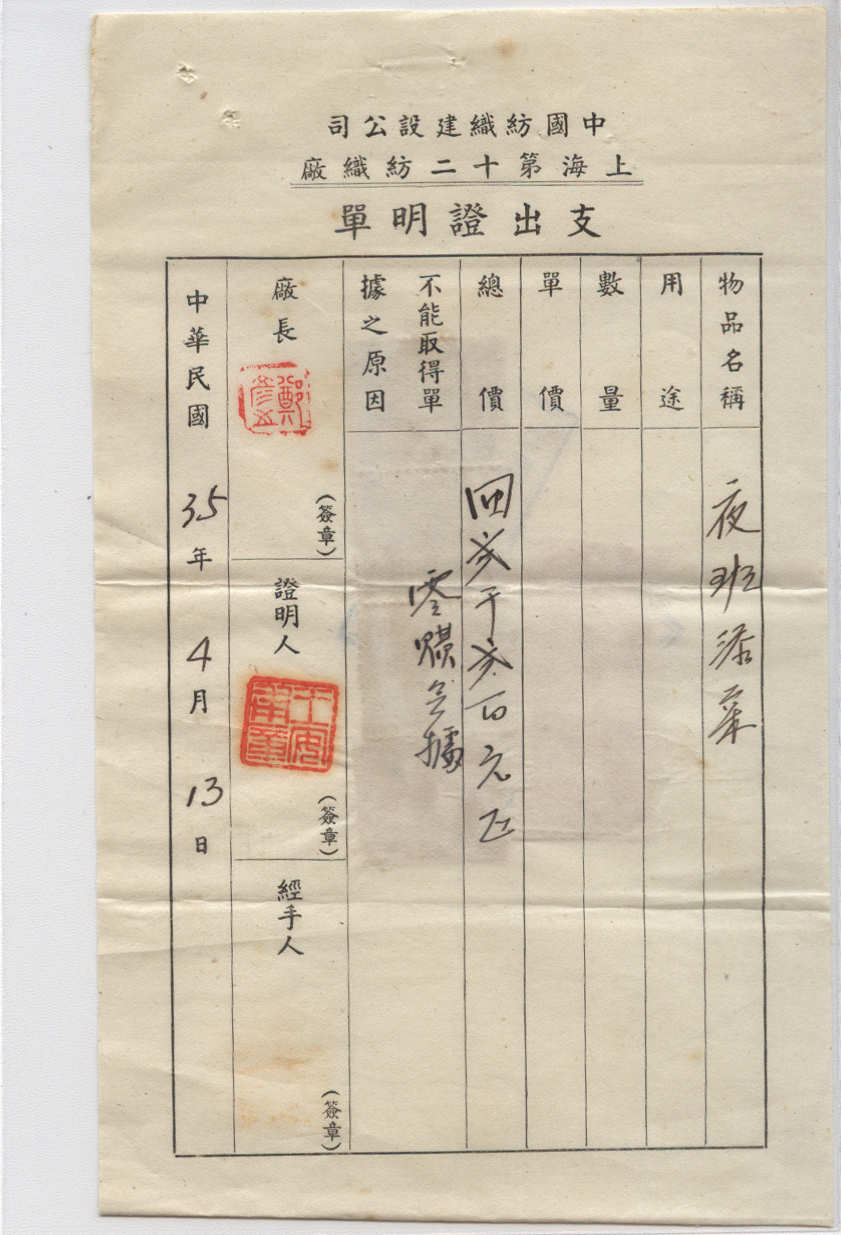 中國紡織建設公司
上海第十二紡織廠
支出證明單
物品名稱 夜班添菜
用途
數量
單價
總價 弍千弍百元正
不能取得單
據之原因
零購無據
廠長
(簽章)
證明人
(簽章)
經手人
(簽章)
中華民國 35年 4月 13日